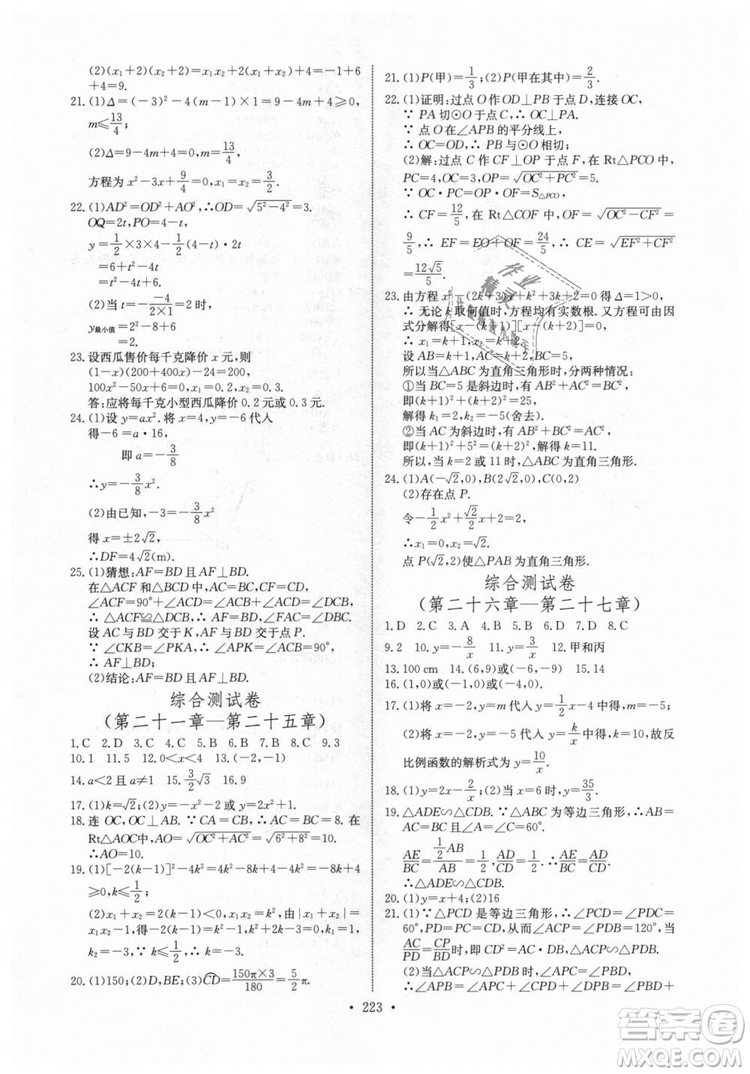 (2)(x₁+2)(x₂+2)=x₁x₂+2(x₁+x₂)+4=-1+6
+4=9.
21. (1)Δ=(-3)²-4(m-1)×1=-9-4m+4≥0,
m≤13/4;
(2)Δ=9-4m+4=0, m=13/4,
方程为 x²-3x+9/4=0, x₁=x₂=3/2.
22. (1)AD²=OD²+AO², ∴OD=√(5²-4²)=3.
OQ=2t, PO=4-t,
y=1/2×3×4-1/2(4-t)·2t
=6+t²-4t
=t²-4t+6.
(2)当 t=-(-4)/(2×1)=2时,
y最小值=2.
23. 设西瓜售价每千克降价 x 元,则
(1-x)(200+400x)-24=200,
100x²-50x+6=0,
答:应将每千克小型西瓜降价 0.2 元或 0.3 元.
24. (1)设 y=ax². 将 x=4, y=-6代入
得-6=a·16,
即 a=-3/8
∴y=-3/8 x²
(2)由已知,得-3=-3/8 x²
得 x=±2√2,
∴DF=4√2(m).
25. (1)猜想:AF=BD且AF⊥BD.
在△ACF 和△BCD中,
∠ACF=90°+∠ACD=∠BCD,
∴△ACF≌△BCD. ∴AF=BD.
设 AC 与 BD 交于 K, AF 与 BD 交于点 P.
∵∠CKB=∠PKA, ∴∠APK=∠ACK=90°
∴AF⊥BD.
(2)结论:AF=BD且AF⊥BD.
综合测试卷
(第二十一章—第二十五章)
1. C 2. D 3. C 4. D 5. C 6. B 7. C 8. C 9. 3
10. 1 11. 5 12. 0<x<4 13. (-2,-1)
14. a<2 且 a≠1 15. 3/2√3 16. 9
17. (1)k=√2; (2)b=-a²-a²=-2a².
18. 连 OC, OC⊥AB. ∵CA=CB, ∴AC=8. 在
Rt△AOC中, AO=√(OC²+AC²)=√(6²+8²)
∴AO=10.
19. (1)[-2(k-1)]²-4k²=-8k+4≥0,
k≤1/2
(2)x₁+x₂=2(k-1)<0,由|x₁+x₂|=x₁x₂-
1得-2(k-1)=k²-1, k²+2k-3=0. k₁=1,
k₂=-3. ∵k≤1/2, ∴k=-3.
20. (1)150; (2)D, BE; (3)CD=(150π×3)/180=5/2π.
21. (1)P(甲)=1/3; (2)P(甲在其中)=2/3.
22. (1)证明:过点 O 作 OD⊥PB 于点 D, 连接 OC,
∵PA 切⊙O于点 C, ∴OC⊥PA.
∵点 O 在∠APB的平分线上,
∴OC=OD. ∴PB与⊙O相切.
(2)解:过点 C 作 CF⊥OP于点 F. 在 Rt△PCO中,
PC=4, OC=3, OP=√(OC²+PC²)=5.
∵OC·PC=OP·CF=2S△PCO,
∴CF=12/5. 在 Rt△COF中, OF=√(OC²-CF²)=
9/5. ∴EF=EO+OF=24/5, ∴CE=√(EF²+CF²)
=12√5/5.
23. 由方程 x²-(2k+3)x+k²+3k+2=0得Δ=1>0,
∴无论 k 取何值时,方程均有实数根. 又方程可以因
式分解得[x-(k+1)][x-(k+2)]=0,
解得 x₁=k+1, x₂=k+2.
设 AB=k+1, AC=k+2, BC=5.
所以当△ABC为直角三角形时,分两种情况:
①当 BC=5是斜边时,有 AB²+AC²=BC²,
即(k+1)²+(k+2)²=25.
解得 k₁=2, k₂=-5(舍去).
②当 AC 是斜边时,有 AB²+BC²=AC²,
即(k+1)²+5²=(k+2)²,解得 k=11.
所以,当 k=2或 11时,△ABC为直角三角形.
24. (1)A(-√2,0),B(√2,0),C(0,2)
(2)存在点 P.
令-1/2x²-√2/2x+2=-x²+2,
∴x₁=0, x₂=√2.
点 P(√2,0),能使△PAB为直角三角形.
综合测试卷
(第二十六章—第二十七章)
1. D 2. C 3. C 4. B 5. B 6. D 7. D 8. C
9. 2 10. y=-8/x 11. y=3/x 12. 甲和丙
13. 100 cm 14. (6,9)或(-6,-9) 15. 14
16. (1,0)或(-1,0)或(4,0)或(-4,0).
17. (1)将 x=-2, y=m代入 y=1/2x-4中,得 m=-5.
(2)将 x=-2, y=-5代入 y=k/x中,得 k=10. 故反
比例函数的解析式为 y=10/x.
18. (1)y=2x-2/x; (2)当 x=6时, y=35/3.
19. △ADE∽△CDB. ∵△ABC为等边三角形, ∴
AE/BC=(1/2AB)/BC=1/2, ∴△ADE∽△CDB.
20. (1)y=x+4; (2)16
21. (1)∵△PCD是等边三角形, ∴∠PCD=∠PDC=
60°, PD=PC=CD, ∴∠ACP=∠PDB=120°,当
AC/PD=CP/BD,即 CD²=AC·BD时,△ACP∽△PDB.
(2)当△ACP∽△PDB时,∠A=∠DPB,
∴∠APB=∠APC+∠CPD+∠DPB=
• 223 •
作业
精灵
答案圈
MXQE.COM